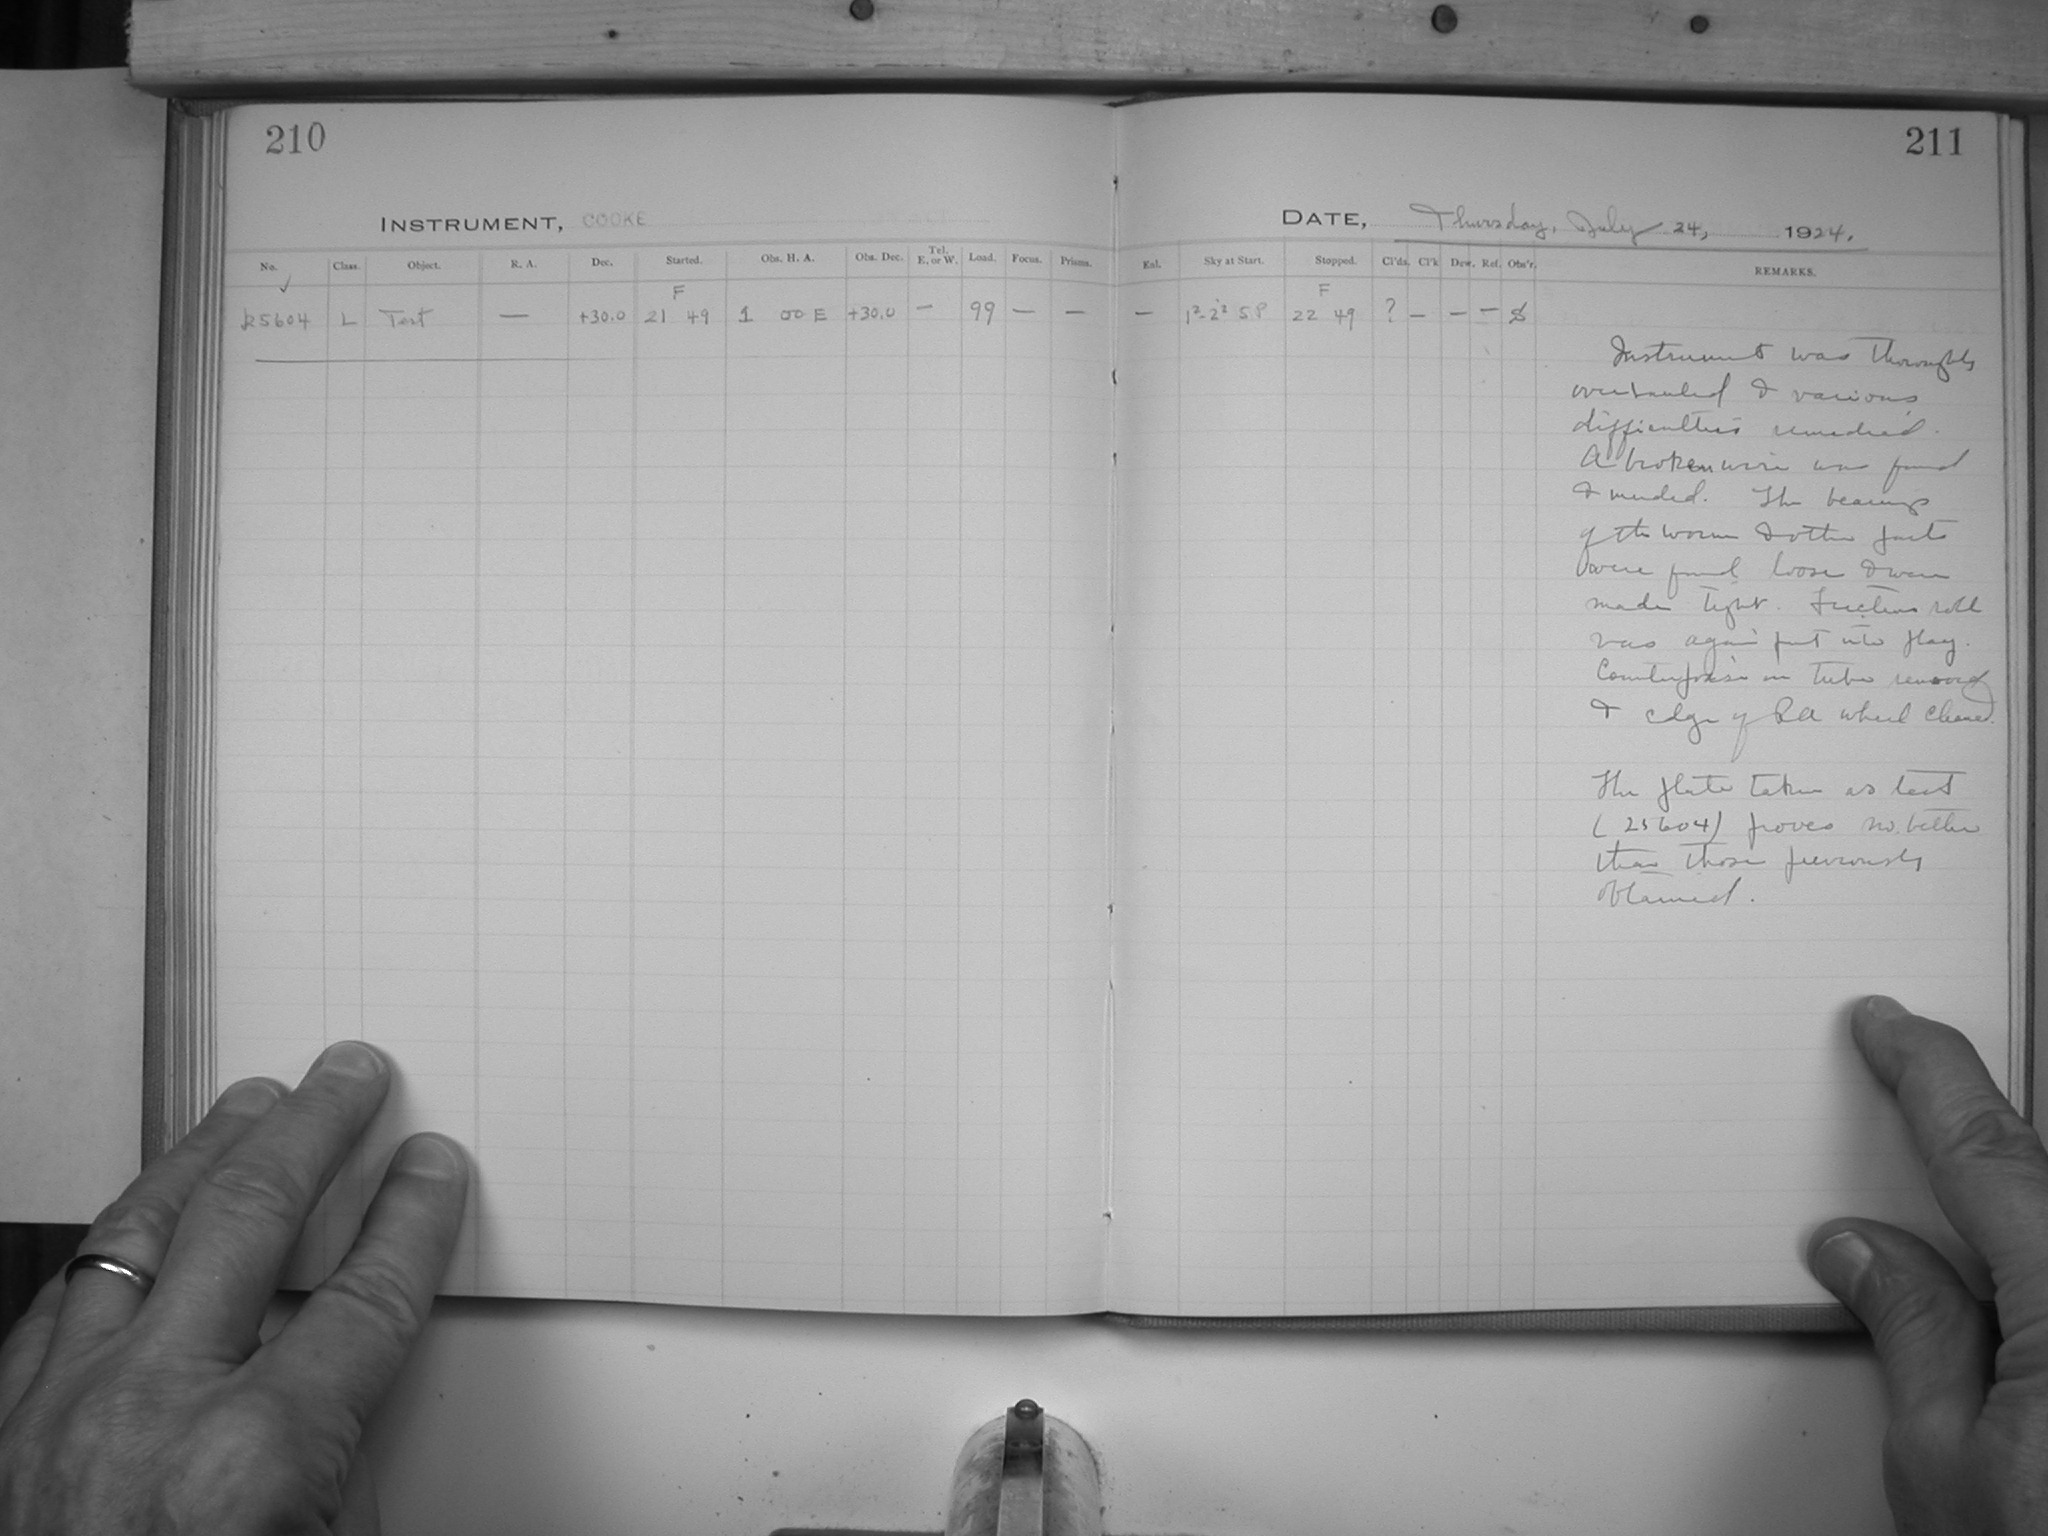 210
211
INSTRUMENT, COOKE
DATE, Thursday, July 24, 1924.
No. Class. Object. R. A. Dec. Started. Obs. H. A. Obs. Dec. Tel. E. or W. Load. Focus. Prisms. Enl. Sky at Start. Stopped. Cl'ds. Cl'k Dew. Ref. Obs'r. REMARKS.
F F
25604 L Test — +30.0 21 49 1 00 E +30.0 — 99 — — — 22 49 ? — — —
Instrument was thoroughly
overhauled & various
difficulties remedied.
A broken wire was found
& mended. The bearings
of the worm & other parts
were found loose & were
made tight. Friction roll
was again put into play.
Counterpoise on tube removed
& edge of RA wheel cleaned.
The plate taken as test
(25604) proves no better
than those previously
obtained.